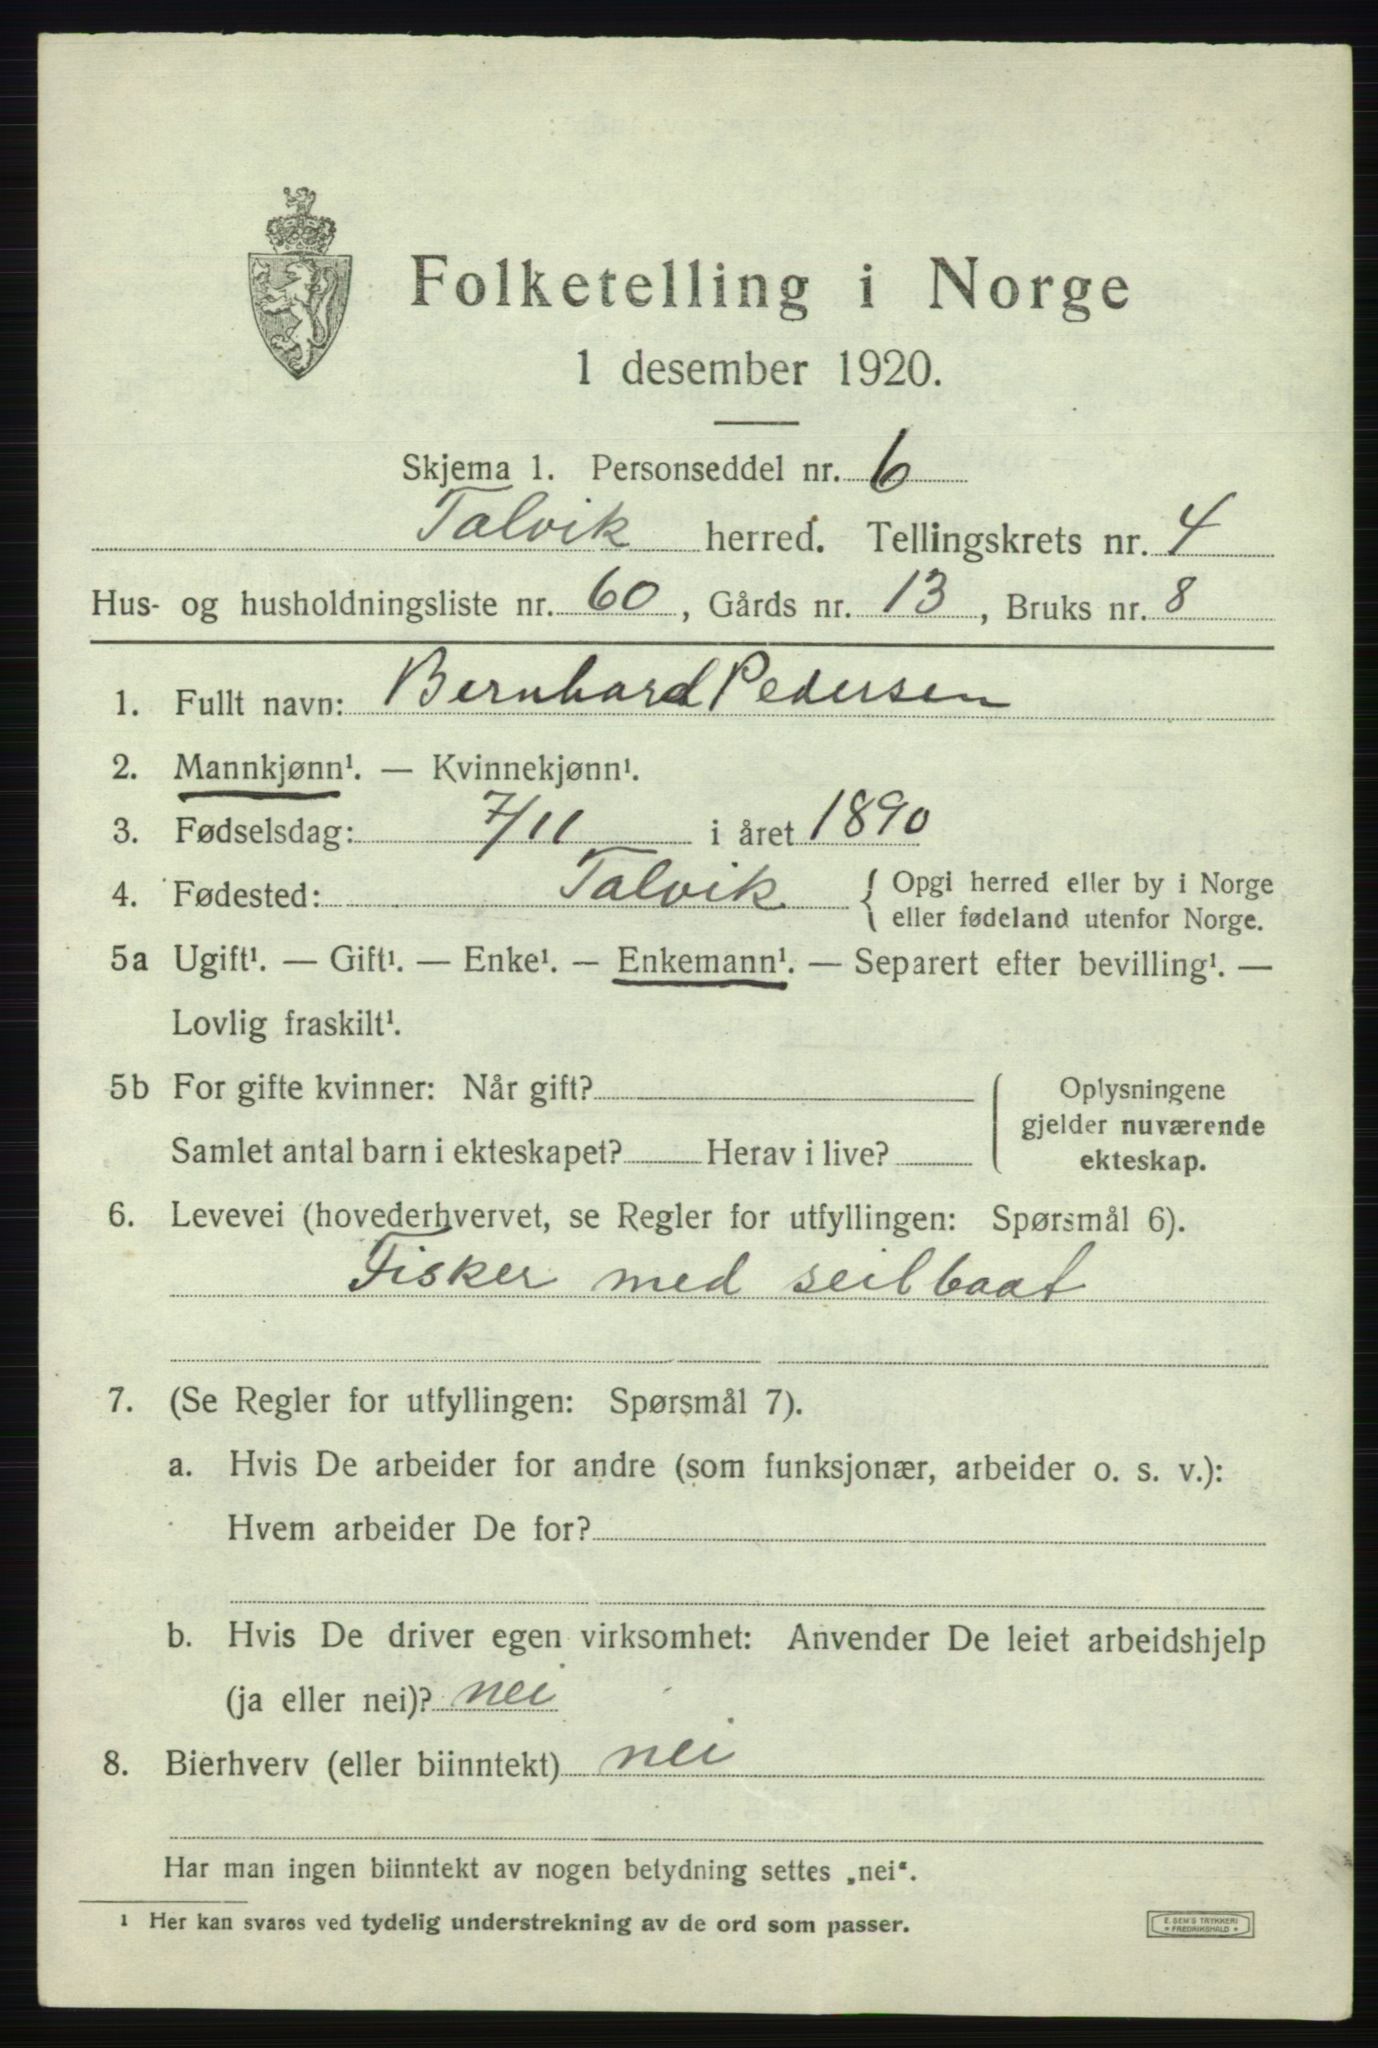 Folketelling i Norge
1 desember 1920.
Skjema 1. Personseddel nr. 6
Talvik herred. Tellingskrets nr. 4
Hus- og husholdningsliste nr. 60, Gårds nr. 13, Bruks nr. 8
1. Fullt navn: Bernhard Pedersen
2. Mannkjønn¹. — Kvinnekjønn¹.
3. Fødselsdag: 7/11 i året 1890
4. Fødested: Talvik { Opgi herred eller by i Norge
eller fødeland utenfor Norge.
5a Ugift¹. — Gift¹. — Enke¹. — Enkemann¹. — Separert efter bevilling¹. —
Lovlig fraskilt¹.
5b For gifte kvinner: Når gift?
Samlet antal barn i ekteskapet? Herav i live?
Oplysningene
gjelder nuværende
ekteskap.
6. Levevei (hovederhvervet, se Regler for utfyllingen: Spørsmål 6).
Fisker med seilbaat
7. (Se Regler for utfyllingen: Spørsmål 7).
a. Hvis De arbeider for andre (som funksjonær, arbeider o. s. v.):
Hvem arbeider De for?
b. Hvis De driver egen virksomhet: Anvender De leiet arbeidshjelp
(ja eller nei)? nei
8. Bierhverv (eller biinntekt) nei
Har man ingen biinntekt av nogen betydning settes „nei“.
1 Her kan svares ved tydelig understrekning av de ord som passer.
E. SEM'S TRYKKERI
* FREDRIKSHALD *